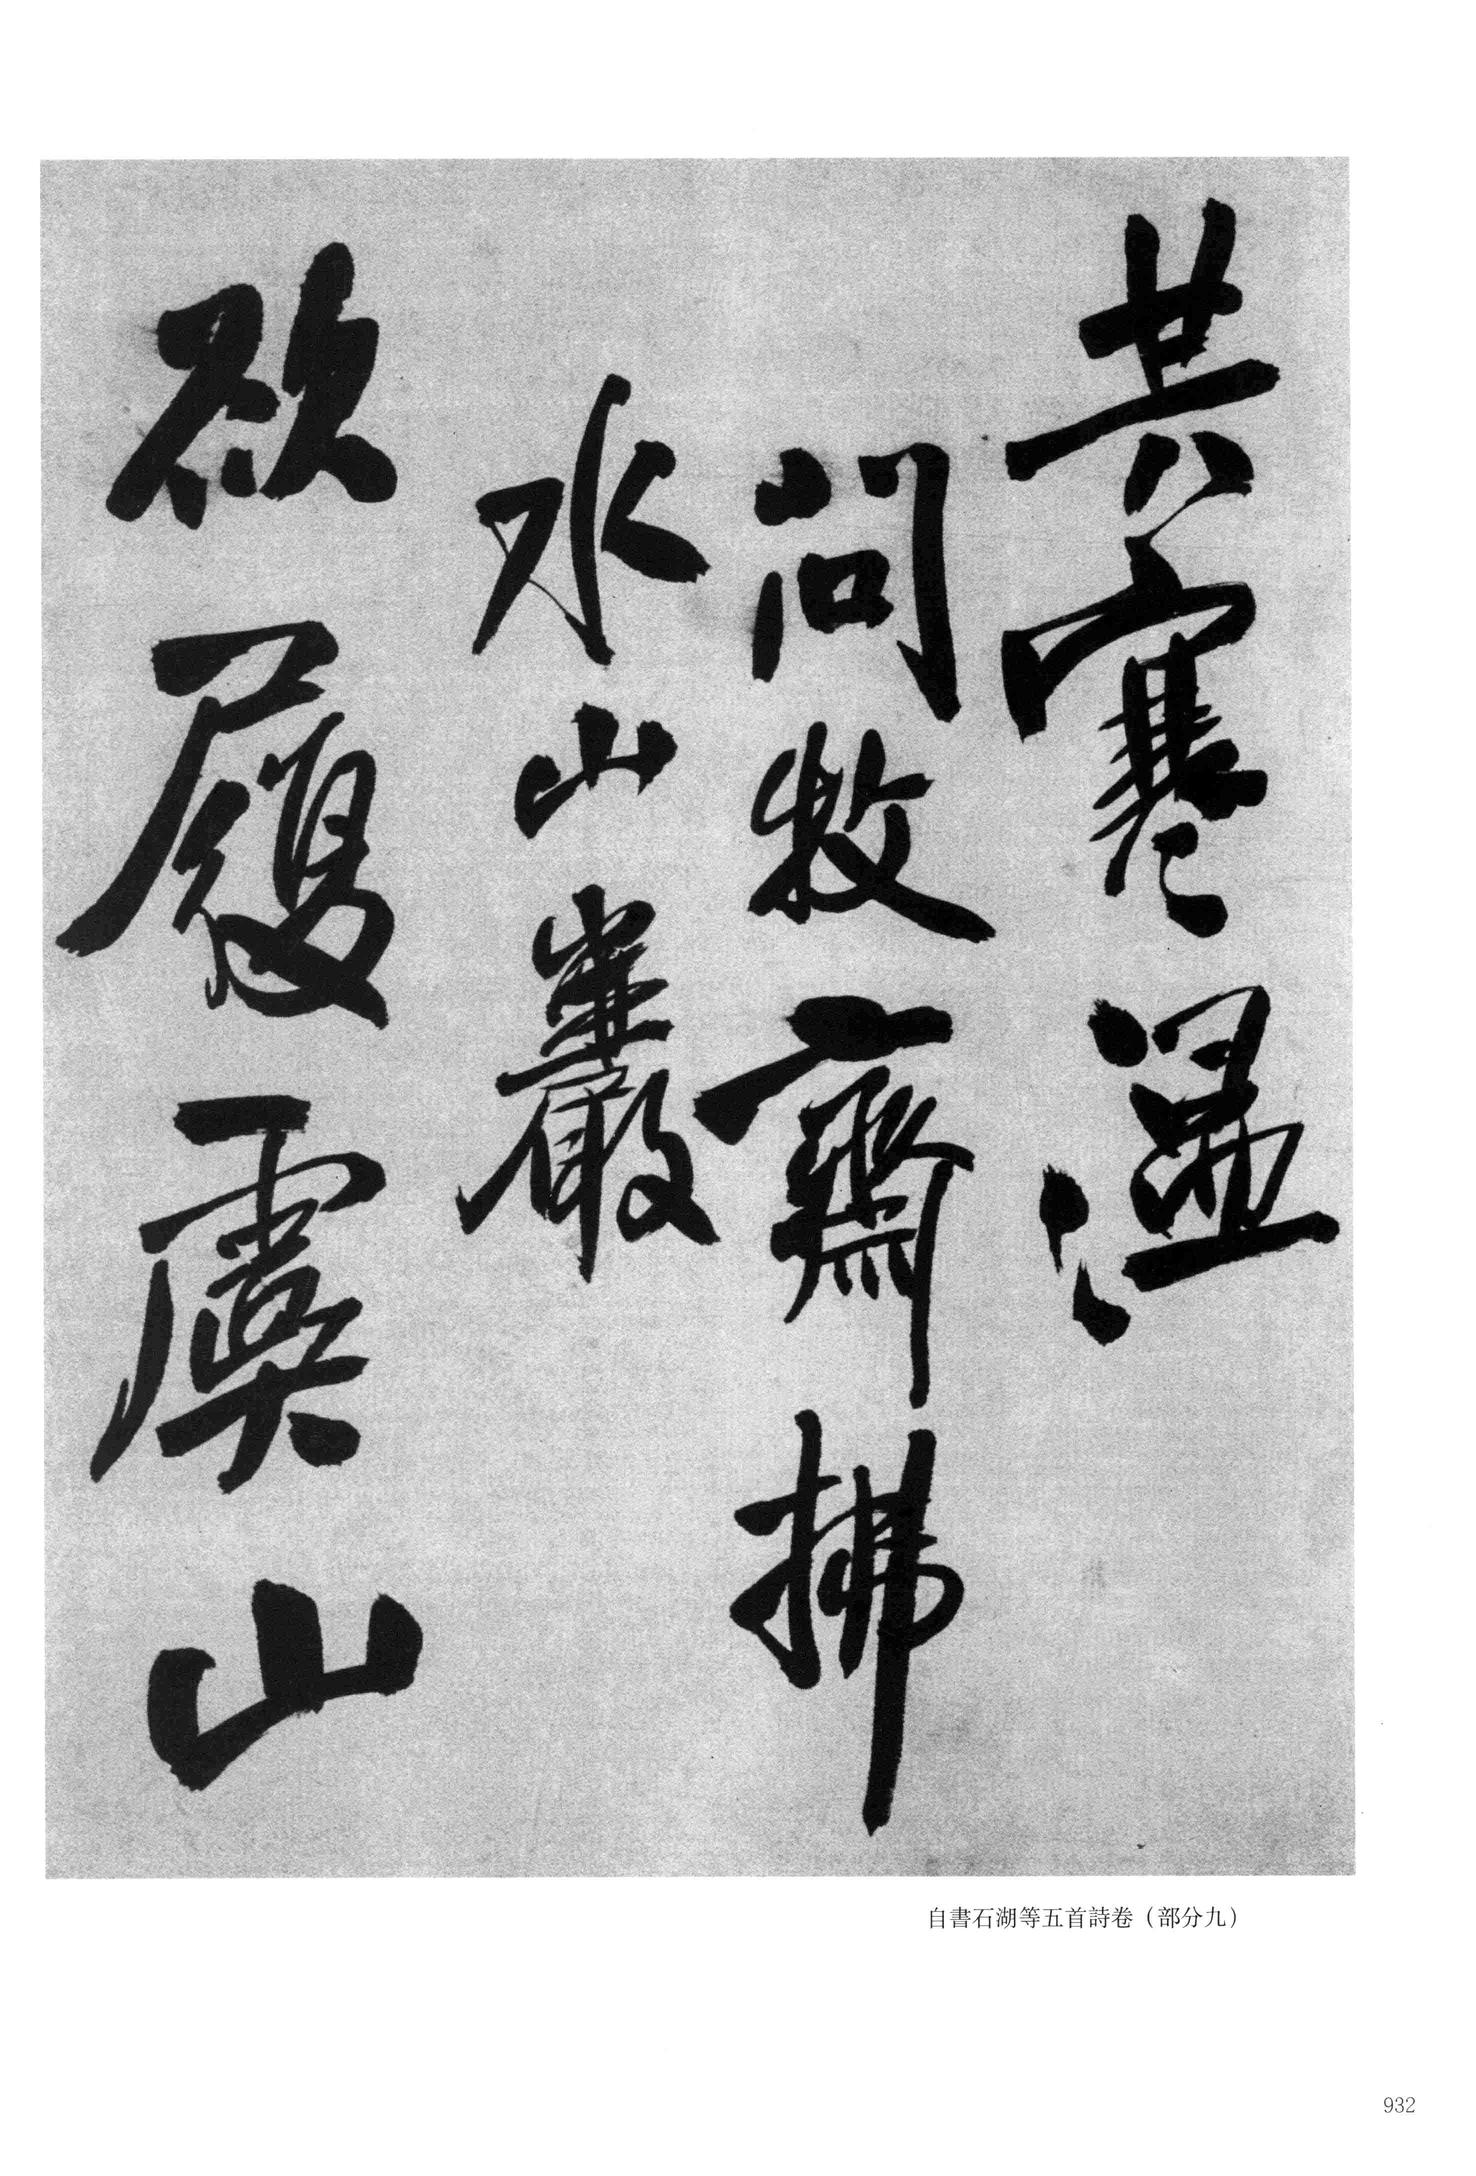 共寒温
問牧齋拂
水山巖
欲履虞山
自書石湖等五首詩卷（部分九）
932